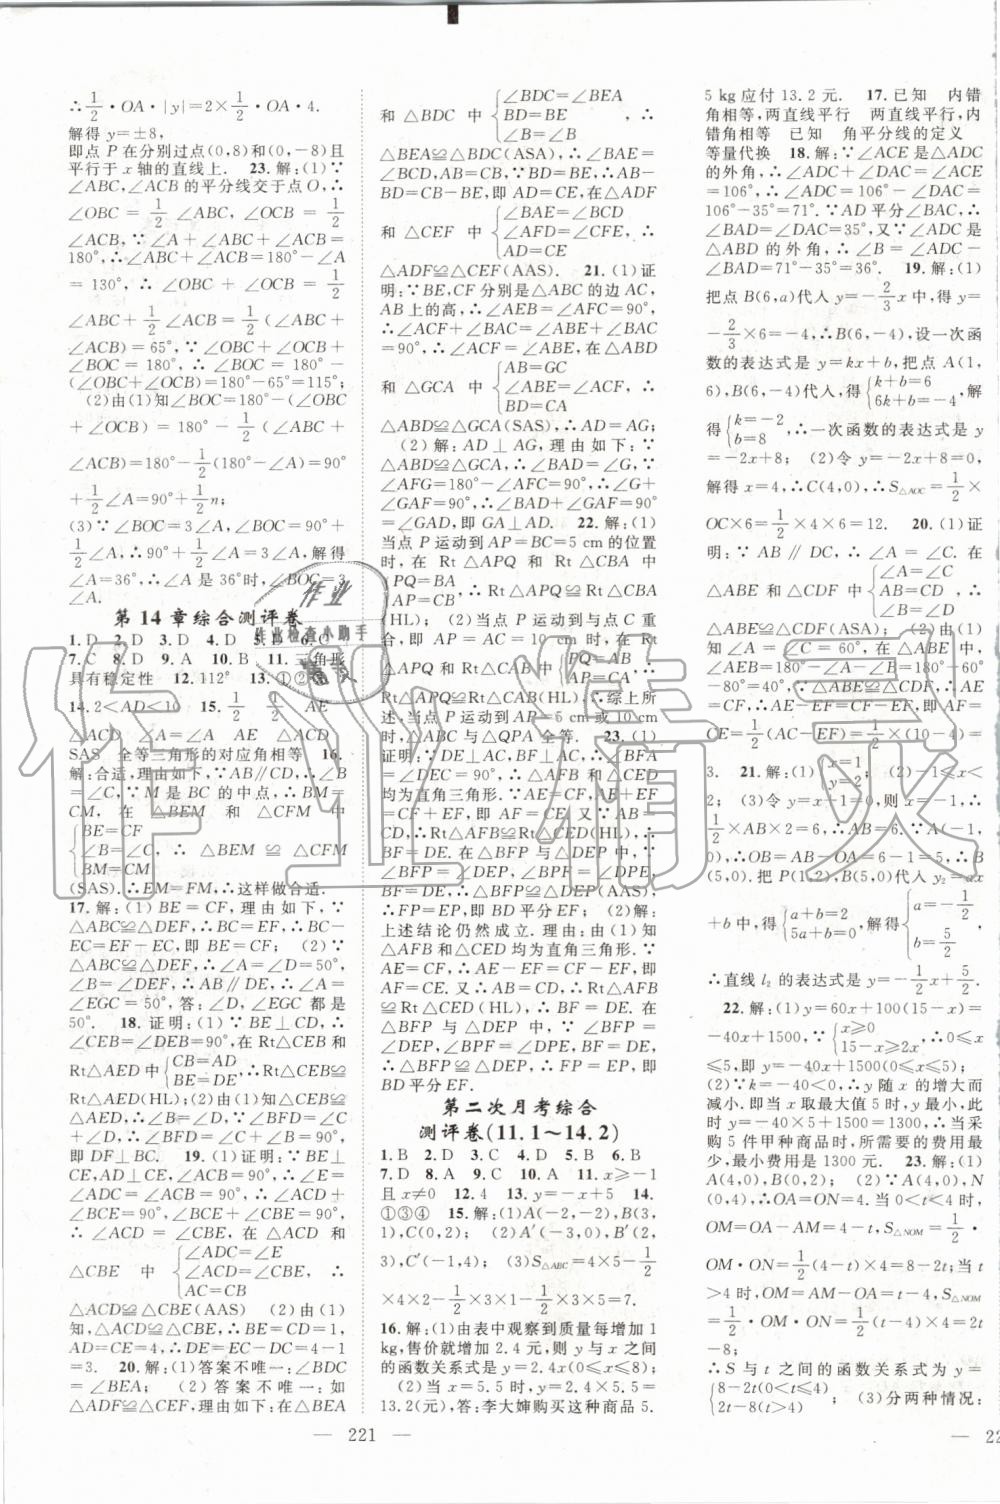 ∴1/2·OA·|y|=2×1/2·OA·4.
解得 y=±8,
即点 P 在分别过点(0,8)和(0,-8)且
平行于 x 轴的直线上. 23.解:(1)∵
∠ABC,∠ACB 的平分线交于点 O,∴
∠OBC=1/2∠ABC,∠OCB=1/2
∠ACB,∵∠A+∠ABC+∠ACB=
180°,∴∠ABC+∠ACB=180°-∠A
=130°,∴∠OBC+∠OCB=1/2
∠ABC+1/2∠ACB=1/2(∠ABC+
∠ACB)=65°,∵∠OBC+∠OCB+
∠BOC=180°,∴∠BOC=180°-
(∠OBC+∠OCB)=180°-65°=115°;
(2)由(1)知∠BOC=180°-(∠OBC
+∠OCB)=180°-1/2(∠ABC+
∠ACB)=180°-1/2(180°-∠A)=90°
+1/2∠A=90°+1/2n;
(3)∵∠BOC=3∠A,∠BOC=90°+
1/2∠A,∴90°+1/2∠A=3∠A,解得
∠A=36°,∴∠BOC=3
∠A.
第14章综合测评卷
1.D 2.D 3.D 4.D 5.D 6.C
7.C 8.D 9.A 10.B 11.三角形
具有稳定性 12.112° 13.①②
14.2<AD<10 15.1/2 1/2 AE
∠ACD ∠ACD AE ∠ACD
SAS 全等三角形的对应角相等 16.
解:合适,理由如下:∵AB∥CD,∴∠B
=∠C,∵M 是 BC 的中点,∴BM=
CM,在△BEM 和△CFM 中
{BE=CF
∠B=∠C,∴△BEM≌△CFM
BM=CM
(SAS).∴EM=FM,∴这样做合适.
17.解:(1)BE=CF,理由如下,∵
△ABC≌△DEF,∴BC=EF,∴BC-
EC=EF-EC,即 BE=CF; (2)∵
△ABC≌△DEF,∠A=50°,∴∠D=
∠B=∠DEF,∴AB∥DE,∴∠A=
∠EGC=50°,答:∠D,∠EGC 都是
50°. 18.证明:(1)∵BE⊥CD,∴
∠CEB=∠DEB=90°,在 Rt△CEB 和
Rt△AED 中{CB=AD
BE=DE,∴Rt△CEB≌
Rt△AED(HL);(2)由(1)知△CEB≌
△AED,∴∠ABC=∠D,∵∠ABC+
∠C=90°,∴∠D+∠C=90°,∴∠CFD=90°,
即 DF⊥BC. 19.(1)证明:∵BE⊥
CE,AD⊥CE,∴∠ADC=∠E=90°,∵
∠ACB=90°,∴∠ACD+
∠BCE=90°,∵∠BCE+∠CBE=90°,
∴∠ACD=∠CBE,在△ACD 和
△CBE 中{∠ADC=∠E
∠ACD=∠CBE,∴
AC=CB
△ACD≌△CBE(AAS) (2)由(1)
知,△ACD≌△CBE,∴BE=CD,
AD=CE=4,∴BE=CD=CE-DE=4-1
=3. 20.解:(1)答案不唯一:∠BDC
=∠BEA; (2)答案不唯一:如
△ADF≌△CEF,理由如下:在△BEA
和△BDC 中{∠BDC=∠BEA
BD=BE,∴
∠B=∠B
△BEA≌△BDC(ASA),∴∠BAE=
∠BCD,BA=BC,∵BD=BE,∴BA-
BD=CB-BE,即 AD=CE,在△ADF
和△CEF 中{∠BAE=∠BCD
∠AFD=∠CFE,∴
AD=CE
△ADF≌△CEF(AAS). 21.(1)证
明:∵BE,CF 分别是△ABC 的边 AC,
AB 上的高,∴∠AEB=∠AFC=90°,
∴∠ACF+∠BAC=∠ABE+∠BAC
=90°,∴∠ACF=∠ABE,在△ABD
和△GCA 中{AB=GC
∠ABE=∠ACF,∴
BD=CA
△ABD≌△GCA(SAS),∴AD=AG;
(2)解:AD⊥AG,理由如下:∵
△ABD≌△GCA,∴∠BAD=∠G,∵
∠AFG=180°-∠AFC=90°,∴∠G+
∠GAF=90°,∴∠BAD+∠GAF=90°
=∠GAD,即 GA⊥AD. 22.解:(1)
当点 P 运动到 PC=BC=5 cm 的位置
时,在 Rt△APQ 和 Rt△CBA 中
{PQ=BA
AP=CB
(HL);(2)当点 P 运动到与点 C 重
合,即 AP=AC 时,在 Rt
△APQ 和 Rt△CAB 中,{PQ=AB
AP=CA
∴Rt△APQ≌Rt△CAB(HL);综上所
述,当点 P 运动到 5 cm 或 10 cm
时,△ABC 与△QPA 全等. 23.(1)
证明:∵DE⊥AC,BF⊥AC,∴△BFA
和△DEC
均为直角三角形.∵AE=CF,∴AE+
EF=CF+EF,即 AF=CE.又∵AB=
CD,∴Rt△AFB≌Rt△CED(HL),∴
BF=DE.在△BFP 与△DEP 中,
∠BFP=∠DEP=90°,∠BPF=∠DPE,
BF=DE,∴△BFP≌△DEP(AAS),
∴FP=EP,即 BD 平分 EF; (2)解:
上述结论仍然成立.理由:由(1)知
△AFB 和△CED 均为直角三角形.∵
AE=CF,∴AE-EF=CF-EF,即
AF=CE.又∵AB=CD,∴Rt△AFB
≌Rt△CED(HL),∴BF=DE.在
△BFP 与△DEP 中,∵∠BFP=
∠DEP,∠BPF=∠DPE,BF=DE,
∴△BFP≌△DEP(AAS),∴FP=EP,
即 BD 平分 EF.
第二次月考综合
测评卷(11.1～14.2)
1.B 2.D 3.C 4.A 5.B 6.B
7.D 8.A 9.C 10.A 11.x≥-1
且 x≠0 12.4 13.y=-x+5 14.
①③④ 15.解:(1)A(-2,-2),B(3,
1),C(0,2); (2)A′(-3,0),B′(2,
3),C′(-1,4); (3)S△ABC=4×5-1/2
×4×2-1/2×3×1-1/2×3×5=7.
16.解:(1)由表中观察到质量每增加 1
kg,售价就增加 2.4 元,则 y 与 x 之间
的函数关系式是 y=2.4x(0≤x≤8);
(2)当 x=5.5 时,y=2.4×5.5=
13.2(元),答:李大婶购买这种商品 5.
5 kg 应付 13.2 元. 17.已知 内错
角相等,两直线平行 两直线平行,内
错角相等 已知 角平分线的定义
等量代换 18.解:∵∠ACE 是△ADC
的外角,∴∠ADC+∠DAC=∠ACE
=106°,∴∠ADC=106°-∠DAC=
106°-35°=71°.∵AD 平分∠BAC,∴
∠BAD=∠DAC=35°,又∵∠ADC 是
△ABD 的外角,∴∠B=∠ADC-
∠BAD=71°-35°=36°. 19.解:(1)
把点 B(6,a)代入 y=-2/3x 中,得 y=
-2/3×6=-4,∴B(6,-4),设一次函
数的表达式是 y=kx+b,把点 A(1,
6),B(6,-4)代入,得{k+b=6
6k+b=-4,解
得{k=-2
b=8,∴一次函数的表达式是 y=
-2x+8; (2)令 y=-2x+8=0,
解得 x=4,∴C(4,0),∴S△AOC=1/2×
OC×6=1/2×4×6=12. 20.(1)证
明:∵AB∥DC,∴∠A=∠C.在
△ABE 和△CDF 中{∠A=∠C
AE=CF,∴
△ABE≌△CDF(ASA); (2)由(1)
知,∠A=∠C=60°,在△ABE 中,
∠AEB=180°-∠A-∠B=180°-60°-
60°=60°.∵△ABE≌△CDF,∴AE
=CF,∴AE-EF=CF-EF,即 AF=
CE=1/2(AC-EF)=1/2×(10-4)=
3. 21.解:(1){x=1
y=2 (2)-1≤x<
2; (3)令 y=x+1=0,则 x=-1,∵
1/2×AB×2=6,∴AB=6.∵A(-1,
0),∴OB=AB-OA=6-1=5,∴B
(5,0).把 P(1,2),B(5,0)代入 y₂=ax
+b 中,得{a+b=2
5a+b=0,解得{a=-1/2
b=5/2
∴直线 l₂ 的表达式是 y=-1/2x+5/2.
22.解:(1)y=60x+100(15-x)=
-40x+1500,∵{x≥0
15-x≥2x,∴0≤x
≤5,即 y=-40x+1500(0≤x≤5).
(2)∵-40<0,∴y 随 x 的增大而
减小.即当 x 取最大值 5 时,y 最小.此
时-40×5+1500=1300,∴当采
购 5 件甲种商品时,所需要的费用最
少,最小费用是 1300 元. 23.解:(1)
A(4,0),B(0,2); (2)∵A(4,0),N
(0,4),∴OA=ON=4.当 0<t<4 时,
OM=OA-AM=4-t,S△NOM=1/2·
OM·ON=1/2(4-t)×4=8-2t;当 t
>4 时,OM=AM-OA=t-4,S△NOM
=1/2·OM·ON=1/2(t-4)×4=2t
-8;
∴S 与 t 之间的函数关系式为 y=
{8-2t(0<t<4)
2t-8(t>4); (3)分两种情况:
— 221 —
— 22
作业
作业检查小助手
作业精灵